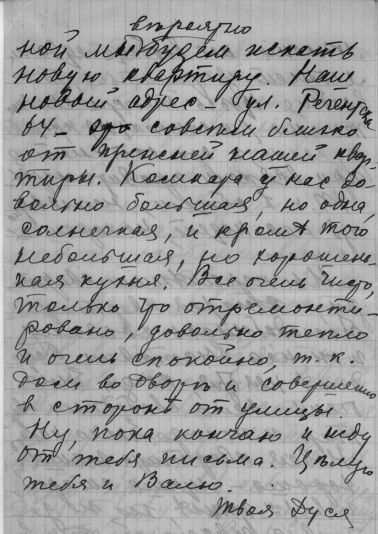 вѣроятно
ной мы будем искать
новую квартиру. Наш
новый адрес – ул. Регентска
64 – это совсем близко
от прежней нашей квар-
тиры. Комната у нас до-
вольно большая, но одна,
солнечная, и кромѣ того
небольшая, но хорошень-
кая кухня. Все очень чисто,
только что отремонти-
ровано, довольно тепло
и очень спокойно, т.к.
дом во дворѣ и совершенно
в сторонѣ от улицы.
Ну, пока кончаю и жду
от тебя письма. Цѣлую
тебя и Валю.
Твоя Дуся